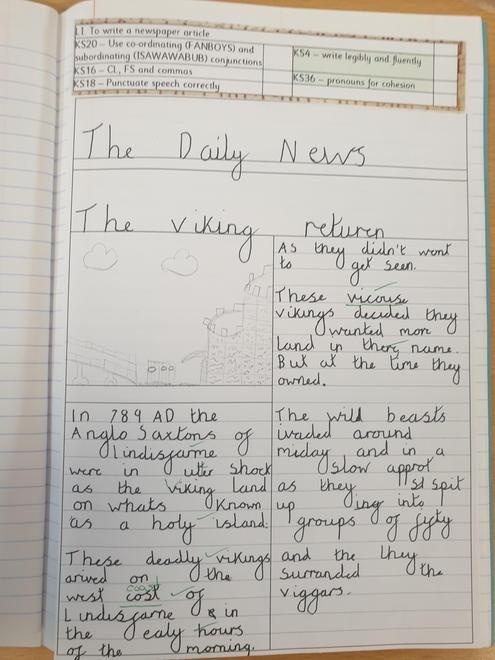 L1 To write a newspaper article
KS20 – Use co-ordinating (FANBOYS) and
subordinating (ISAWAWABUB) conjunctions
KS16 – CL, FS and commas
KS18 – Punctuate speech correctly
KS4 – write legibly and fluently
KS36 – pronouns for cohesion
The Daily News
The viking returen
In 789 AD the
Anglo Saxtons of
lindisfarme
were in utter shock
as the viking land
on whats known
as a holy island.
These deadly vikings
arived on the
coast
west cost of
Lindisfarne & in
the ealy hours
of the morning.
As they didn't want
to get seen.
These vicouse
vikings decided they
wanted more
land in there name.
But at the time they
owned.
The wild beasts
ivaded around
miday and in a
slow approt
as they spit
up ing into
groups of fifty
and the they
surranded the
viggars.